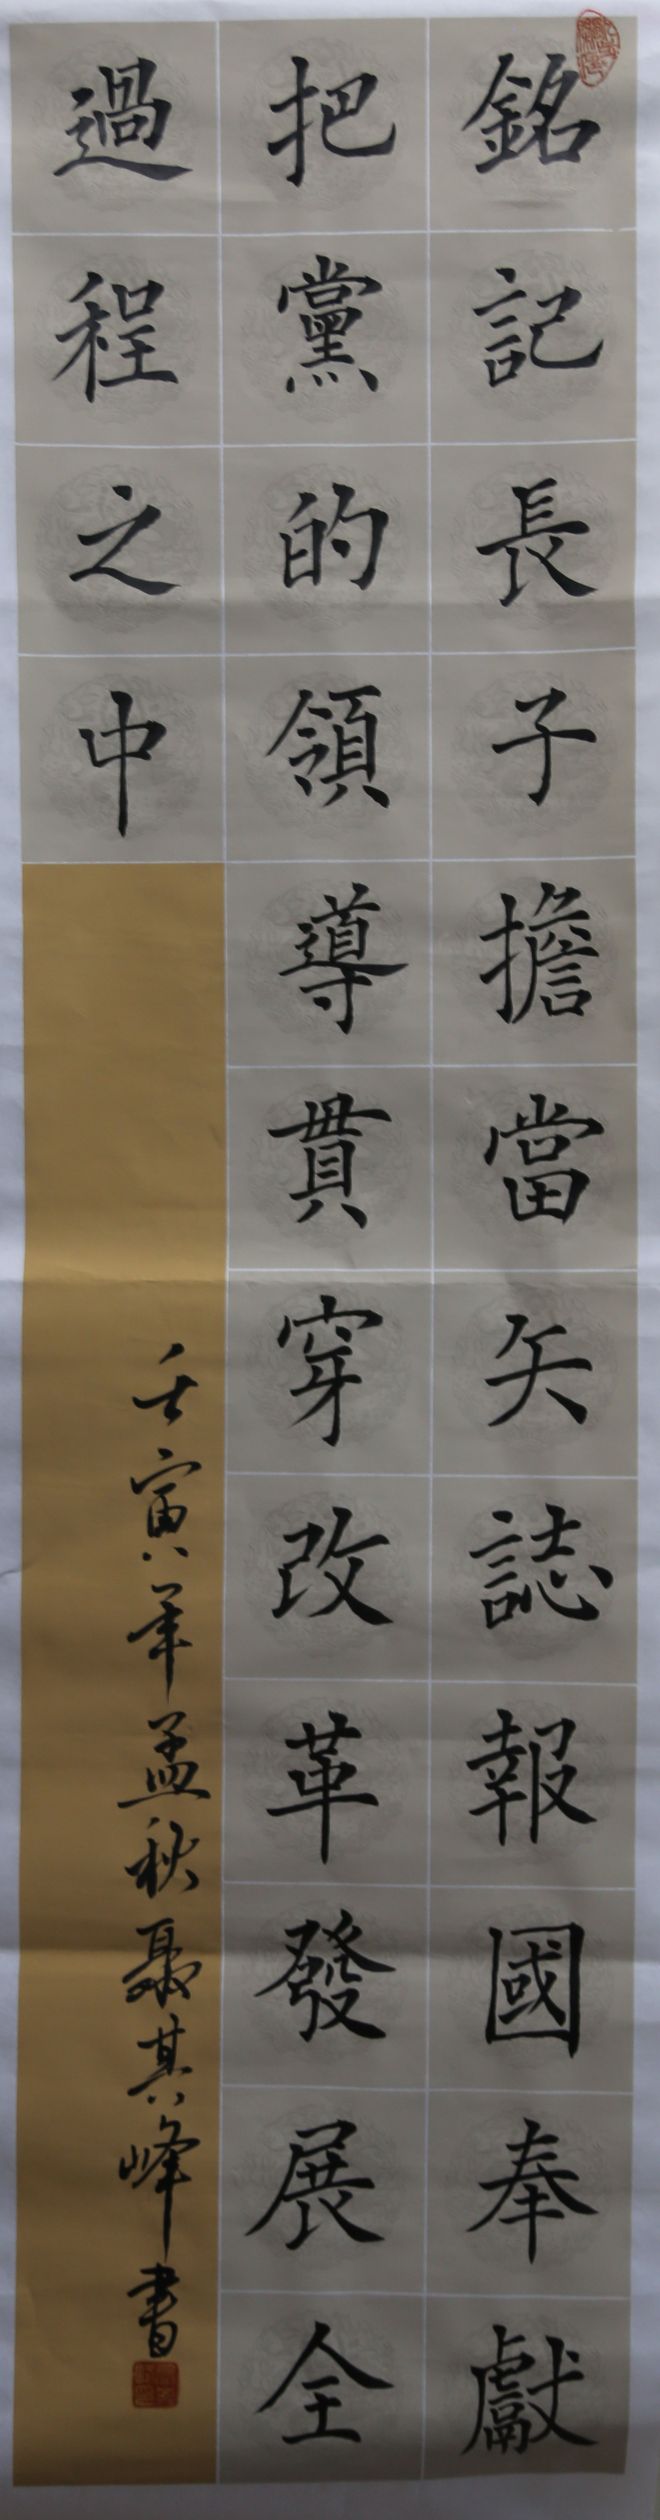 銘記長子擔當矢誌報國奉獻
把黨的領導貫穿改革發展全
過程之中
壬寅年孟秋聶其峰書